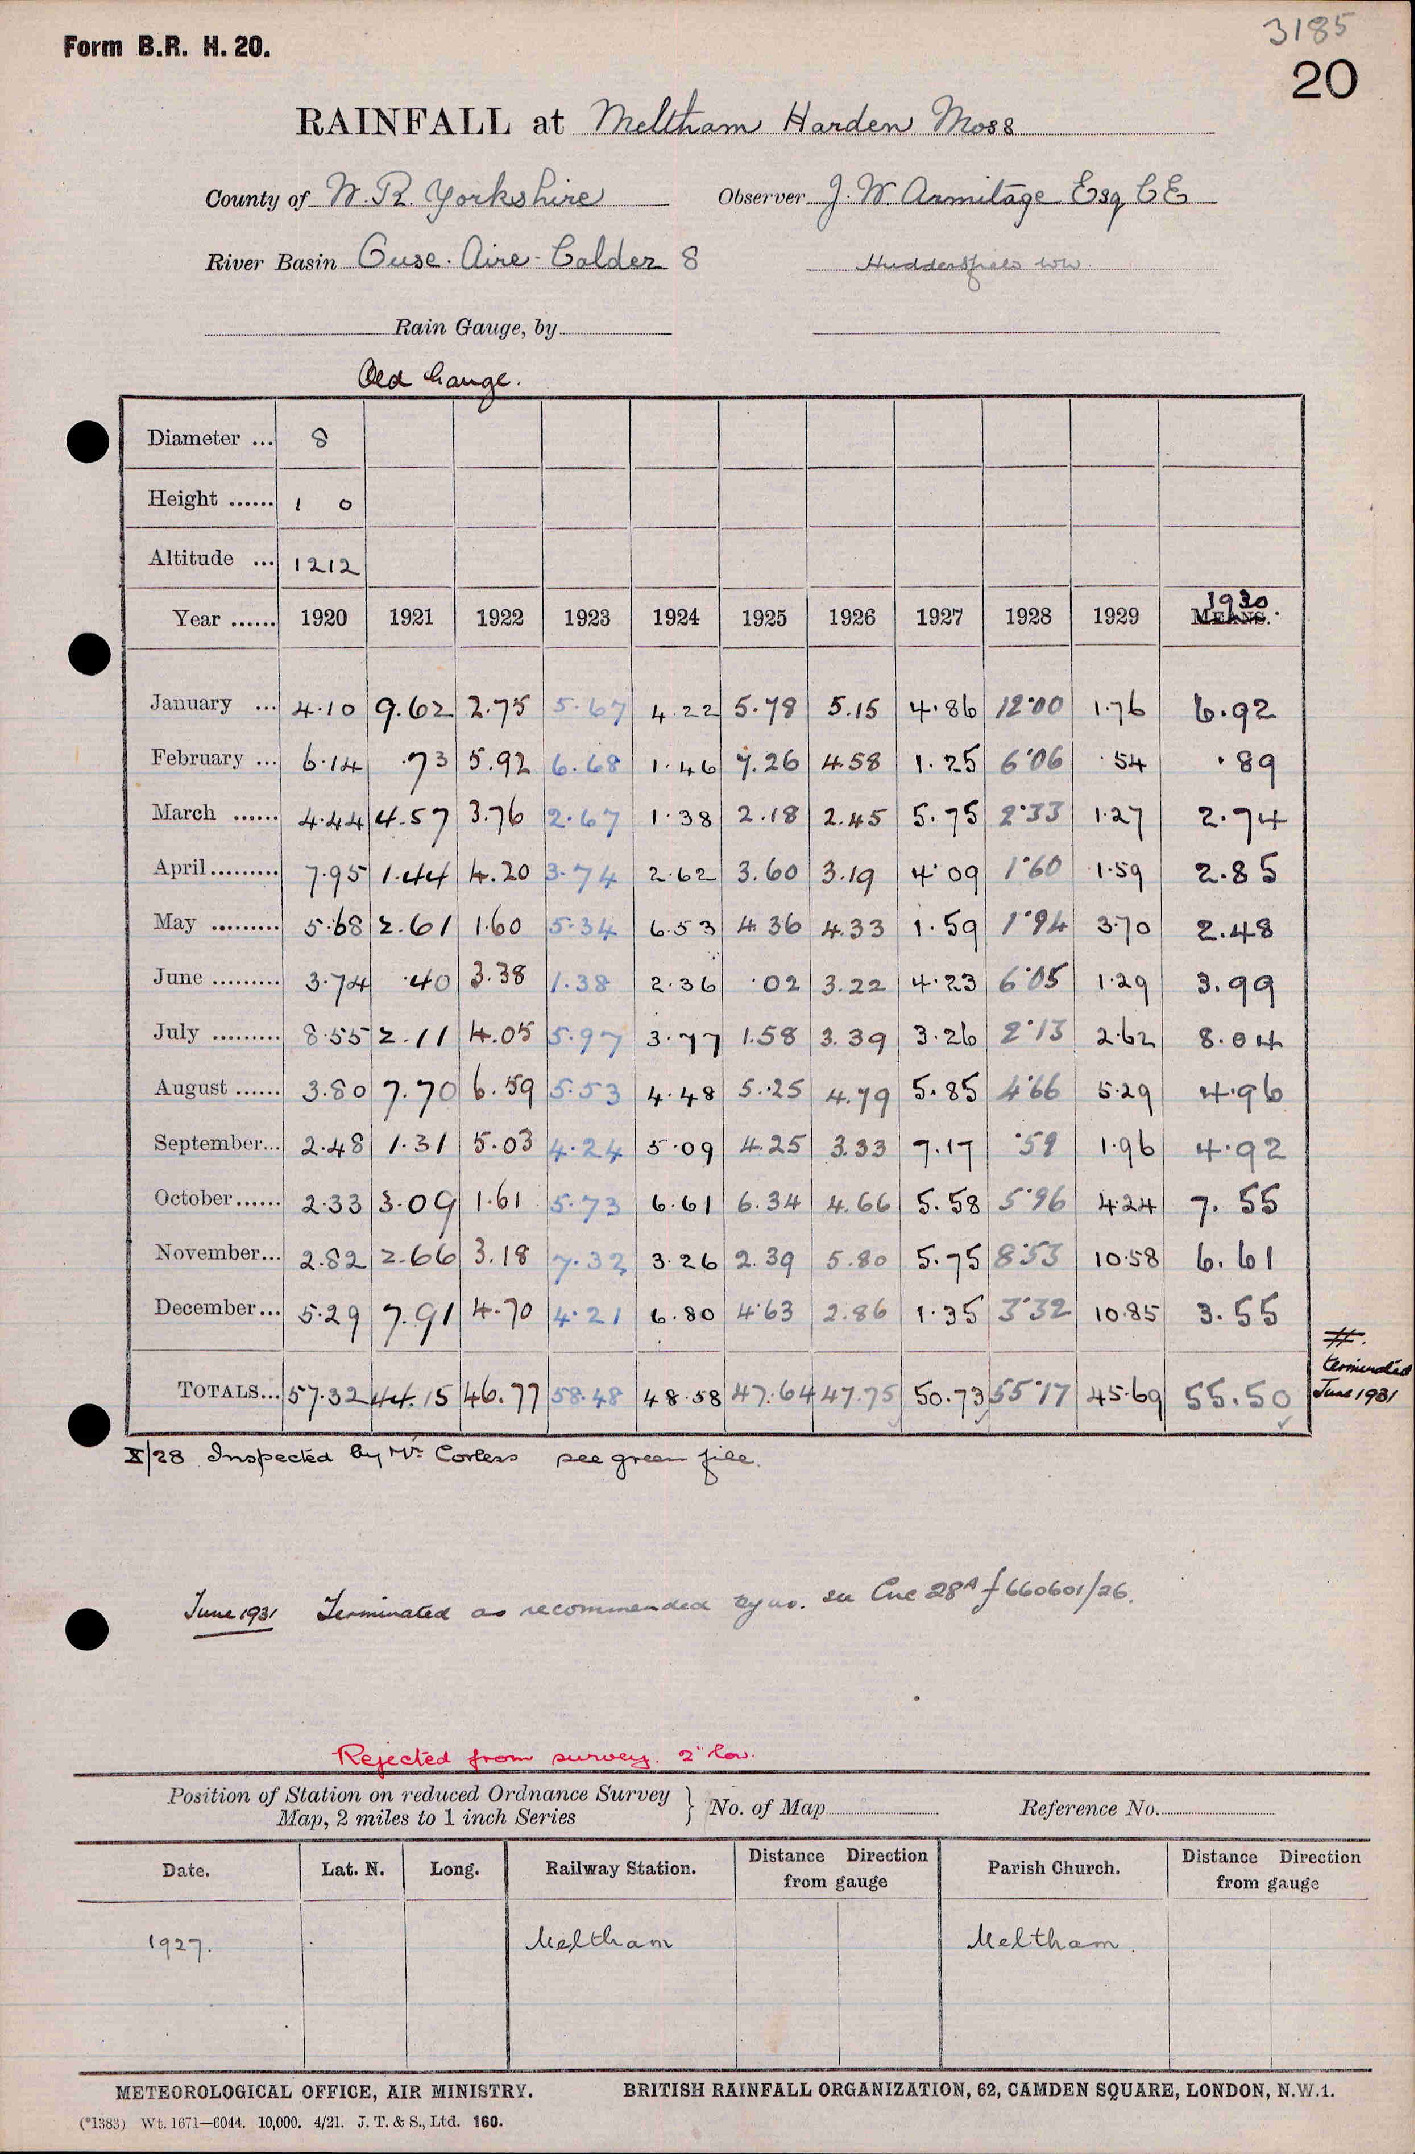 3185
Form B.R. H. 20.
20
RAINFALL at Meltham Harden Moss
County of W. R. Yorkshire Observer J. W. Armitage Esq C E
River Basin Ouse. Aire - Calder 8 Huddersfield WW.
Rain Gauge, by
Old Gauge.
Diameter ... 8
Height ...... 1 0
Altitude ... 1212
1930
Year ...... 1920 1921 1922 1923 1924 1925 1926 1927 1928 1929 MEANS.
January ... 4.10 9.62 2.75 5.67 4.22 5.78 5.15 4.86 12.00 1.76 6.92
February ... 6.14 .73 5.92 6.68 1.46 7.26 4.58 1.25 6.06 .54 .89
March ...... 4.44 4.57 3.76 2.67 1.38 2.18 2.45 5.75 2.33 1.27 2.74
April ......... 7.95 1.44 4.20 3.74 2.62 3.60 3.19 4.09 1.60 1.59 2.85
May ......... 5.68 2.61 1.60 5.34 6.53 4.36 4.33 1.59 1.94 3.70 2.48
June ......... 3.74 .40 3.38 1.38 2.36 .02 3.22 4.23 6.05 1.29 3.99
July ......... 8.55 2.11 4.05 5.97 3.77 1.58 3.39 3.26 2.13 2.62 8.04
August ...... 3.80 7.70 6.59 5.53 4.48 5.25 4.79 5.85 4.66 5.29 4.96
September... 2.48 1.31 5.03 4.24 5.09 4.25 3.33 7.17 .59 1.96 4.92
October...... 2.33 3.09 1.61 5.73 6.61 6.34 4.66 5.58 5.96 4.24 7.55
November... 2.82 2.66 3.18 7.32 3.26 2.39 5.80 5.75 8.53 10.58 6.61
December... 5.29 7.91 4.70 4.21 6.80 4.63 2.86 1.35 3.32 10.85 3.55
TOTALS... 57.32 44.15 46.77 58.48 48.58 47.64 47.75 50.73 55.17 45.69 55.50
#.
terminated
June 1931
X/28 Inspected by Mr. Corless see green file.
June 1931 Terminated as recommended by us. see Enc 28A f 660601/26.
Rejected from survey. 2" low.
Position of Station on reduced Ordnance Survey
Map, 2 miles to 1 inch Series } No. of Map Reference No.
Date. Lat. N. Long. Railway Station. Distance Direction from gauge Parish Church. Distance Direction from gauge
1927. Meltham Meltham.
METEOROLOGICAL OFFICE, AIR MINISTRY. BRITISH RAINFALL ORGANIZATION, 62, CAMDEN SQUARE, LONDON, N.W.1.
(*1383) Wt. 1671—C044. 10,000. 4/21. J. T. & S., Ltd. 160.